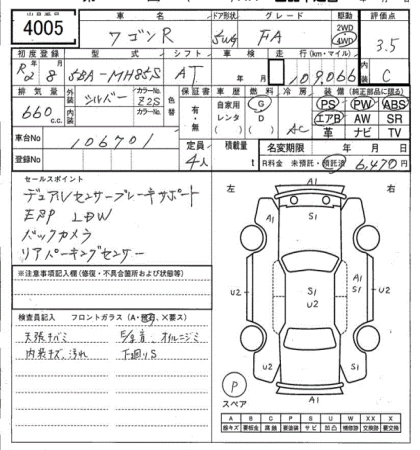 4005
車名 ドア形状 グレード 駆動 評価点
ワゴンR 5WG FA 2WD 4WD 3.5
初度登録 型式 シフト 車検 走行(km・マイル) 内装
R2 8 5BA-MH85S AT 年 月 109066 C
排気量 外装 カラーNo. 色替 保証書 車歴 燃料 冷房 装備(純正部品に限る)
660c.c. シルバー Z2S 有・無 自家用 G AC PS PW ABS
内装 カラーNo. レンタ D エアB AW SR
車台No 106701 革 ナビ TV
登録No 定員 4人 積載量 t 名変期限 年 月 日
R料金 未預託・預託済 6,470円
セールスポイント
デュアルセンサーブレーキサポート
ESP LDW
バックカメラ
リアパーキングセンサー
※注意事項記入欄(修復・不具合箇所および状態等)
検査員記入 フロントガラス(A・飛石、×要ス)
天張キバミ E/G音、オイルニジミ
内装キズ、汚れ 下廻りS
左 右
A1
S1
A1
U2 S1
S1
U2
U2 S1
A1
P
スペア
A B C P S U W X XX
線キズ 要板金 腐蝕 要塗装 サビ 凹凸 補修跡 交換跡 要交換